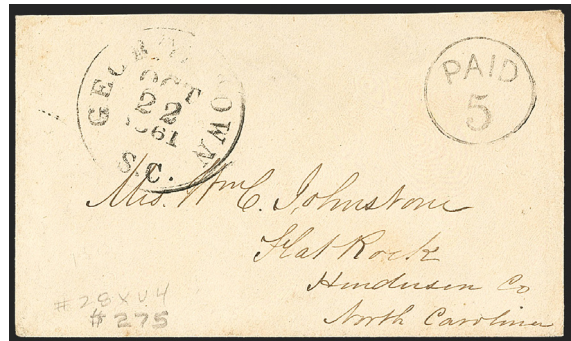 GEORGETOWN
OCT
22
1861
S.C.
PAID
5
Mrs. Wm C. Johnstone
Flat Rock
Henderson Co
North Carolina
#28XU4
#275